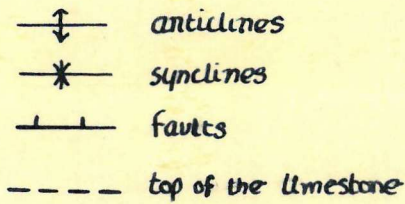 anticlines
synclines
faults
top of the limestone